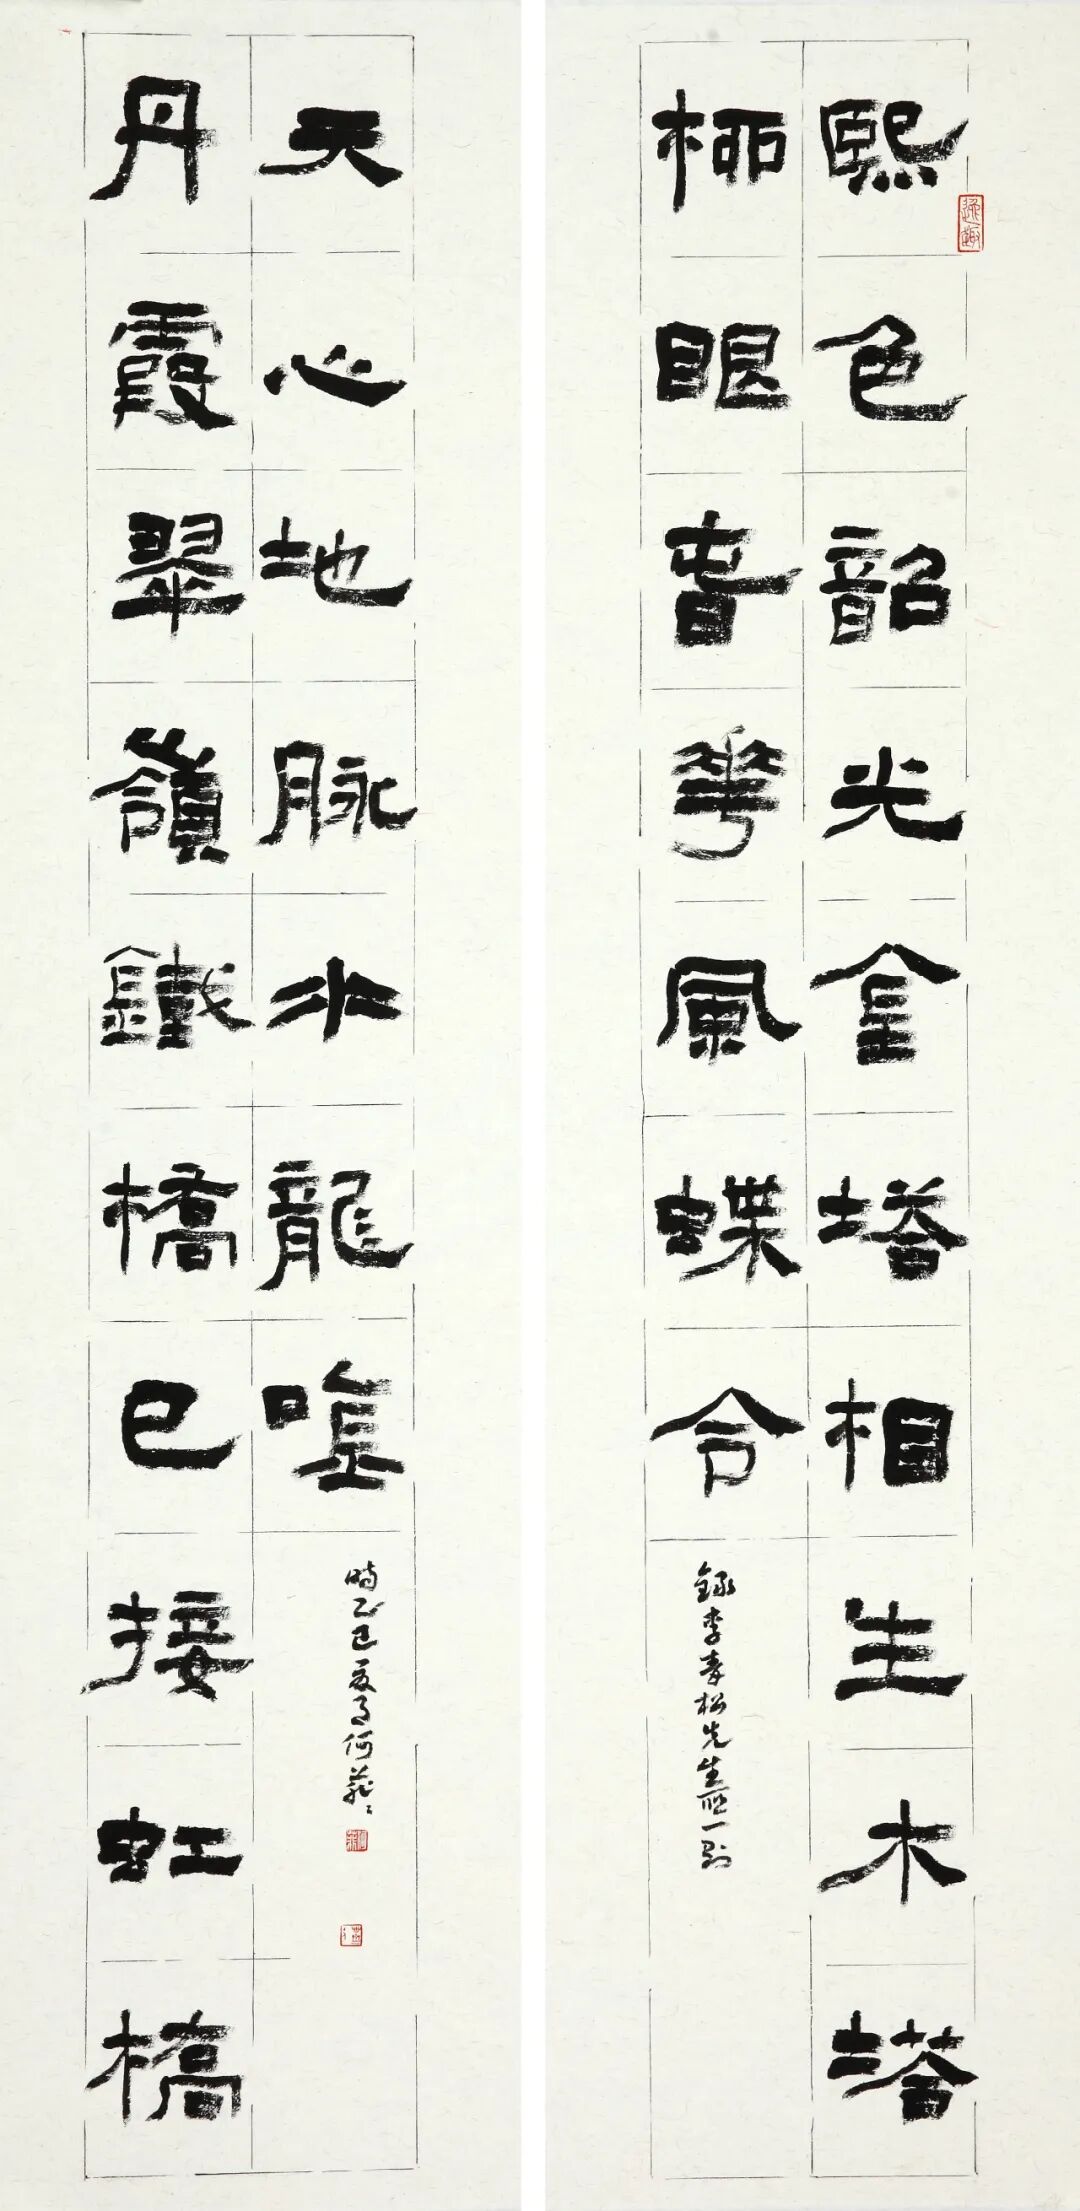 熙色韶光金塔相生木塔
柳眼旾華風蝶令
錄李松先生聯一則
丹霞翠嶺鐵橋已接虹橋
天心地脉水龍唫
時乙巳夏月何